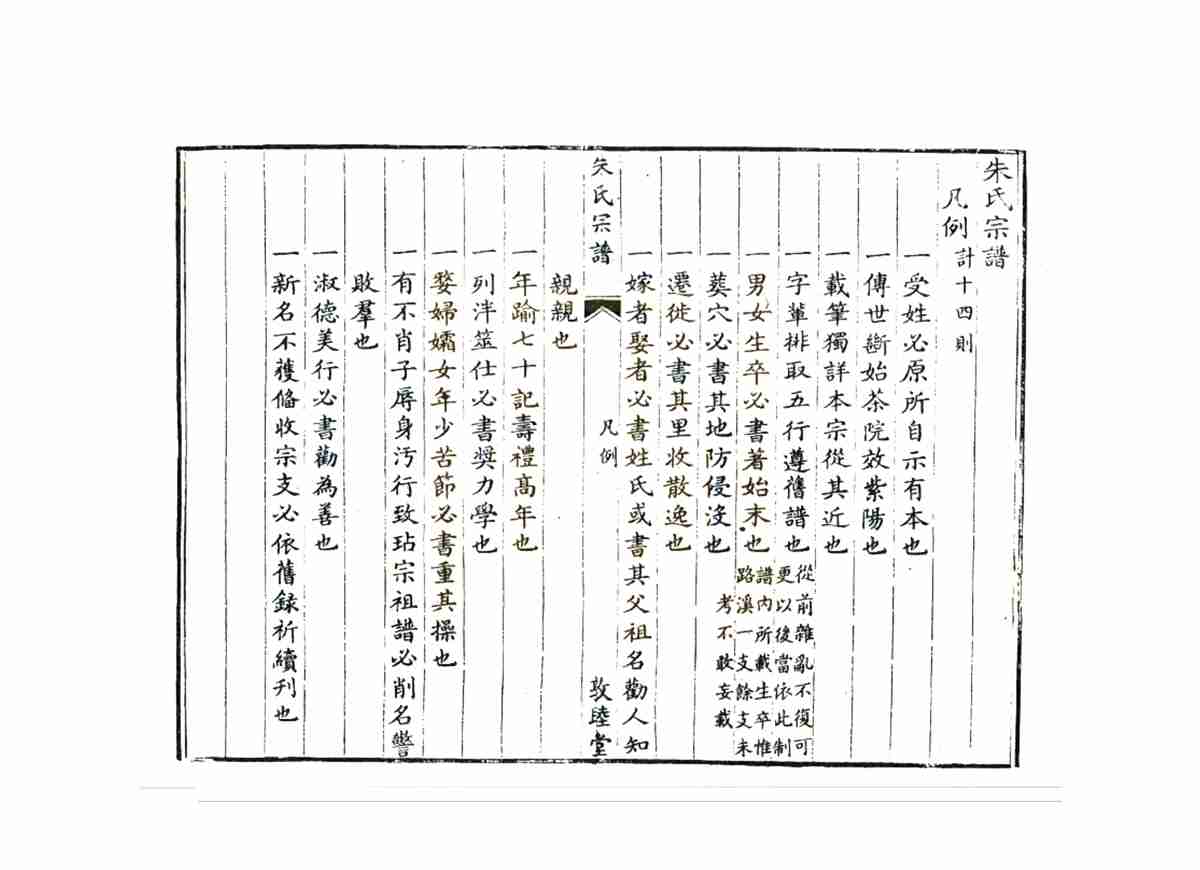 朱氏宗譜
凡例計十四則
一受姓必原所自示有本也
一傳世斷始茶院效紫陽也
一載筆獨詳本宗從其近也
一字輩排取五行遵舊譜也從前雜亂不復可更以後當依此制
一男女生卒必書著始末也譜內所載生卒惟路溪一支餘支未考不敢妄載
一葬穴必書其地防侵沒也
一遷徙必書其里收散逸也
一嫁者娶者必書姓氏或書其父祖名勸人知
朱氏宗譜 凡例 敦睦堂
親親也
一年踰七十記壽禮高年也
一列泮筮仕必書奬力學也
一嫠婦孀女年少苦節必書重其操也
一有不肖子辱身汚行致玷宗祖譜必削名警
敗羣也
一淑德美行必書勸為善也
一新名不獲俻收宗支必依舊録祈續刊也